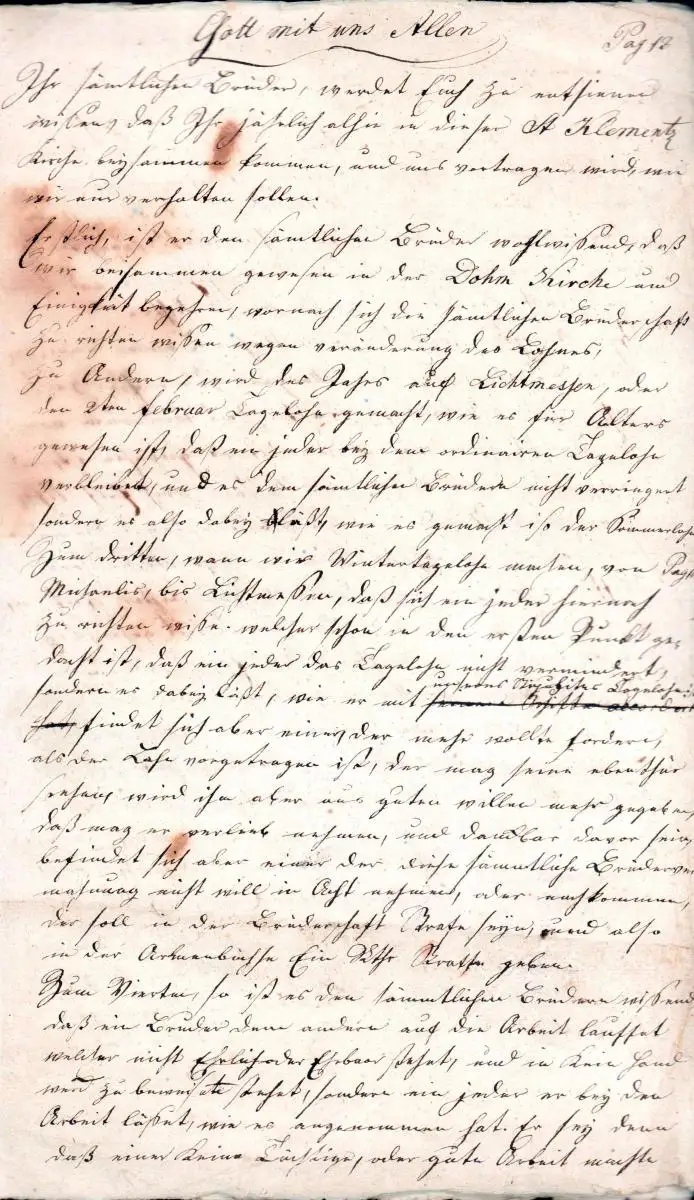 Gott mit uns Allen
Pag 12
Ihr sämtlichen Brüder, werdet Euch zu entsinnen
wissen, daß Ihr jährlich alhie in dieser St Klementz
Kirche beysammen kommen, und uns vortragen wird, wie
wir uns verhalten sollen.
Erstlich, ist er den sämtlichen Brüder wohlwissend, daß
wir beisammen gewesen in der Dohm Kirche und
Einigkeit begehren, wornach sich die sämtlichen Brüderschaft
zu richten wissen wegen veränderung des Lohnes,
Zu Andern, wird des Jahrs auf Lichtmessen, oder
den 2ten februar Tagelohn gemacht, wie es für Alters
gewesen ist, daß ein jeder bey dem ordinairen Tagelohn
verbleibet, und es dem sämtlichen Brüdern nicht verringert
sondern es also dabey läßt, wie es gemacht ist der Sommerlohn
Zum dritten, wann wir Wintertagelohn machen, von
Michaelis, bis Lichtmessen, daß sich ein jeder hiernach
zu richten wisse. welcher schon in den ersten Punkt ge=
dacht ist, daß ein jeder das Tagelohn nicht vermindert,
unseres Tagelohn
sondern es dabey läßt, wie er mit
hat, findet sich aber einer, der mehr wollte fordern,
als der Lohn vorgetragen ist, der mag seine ebenthür
stehen, wird ihm aber aus guten willen mehr gegeben,
daß mag er verlieb nehmen, und dankbar davor sein,
befindet sich aber einer der diese sämmtliche Brüderver
mahnung nicht will in Acht nehmen, oder nachkommen,
der soll in der Brüderschaft Strafe seyn, und also
in der Armenbüchse Ein Rthr Straffe geben.
Zum Vierten, so ist es den sämmtlichen Brüdern wissend
daß ein Bruder dem andern auf die Arbeit lauffet
welcher nicht Ehrlich oder Ehrbaar stehet, und in kein Hand
werk zu beweisen stehet, sondern ein jeder er bey der
Arbeit lässet, wie er angenommen hat. Er sey denn
daß einer keine Tüchtige, oder gute Arbeit machte